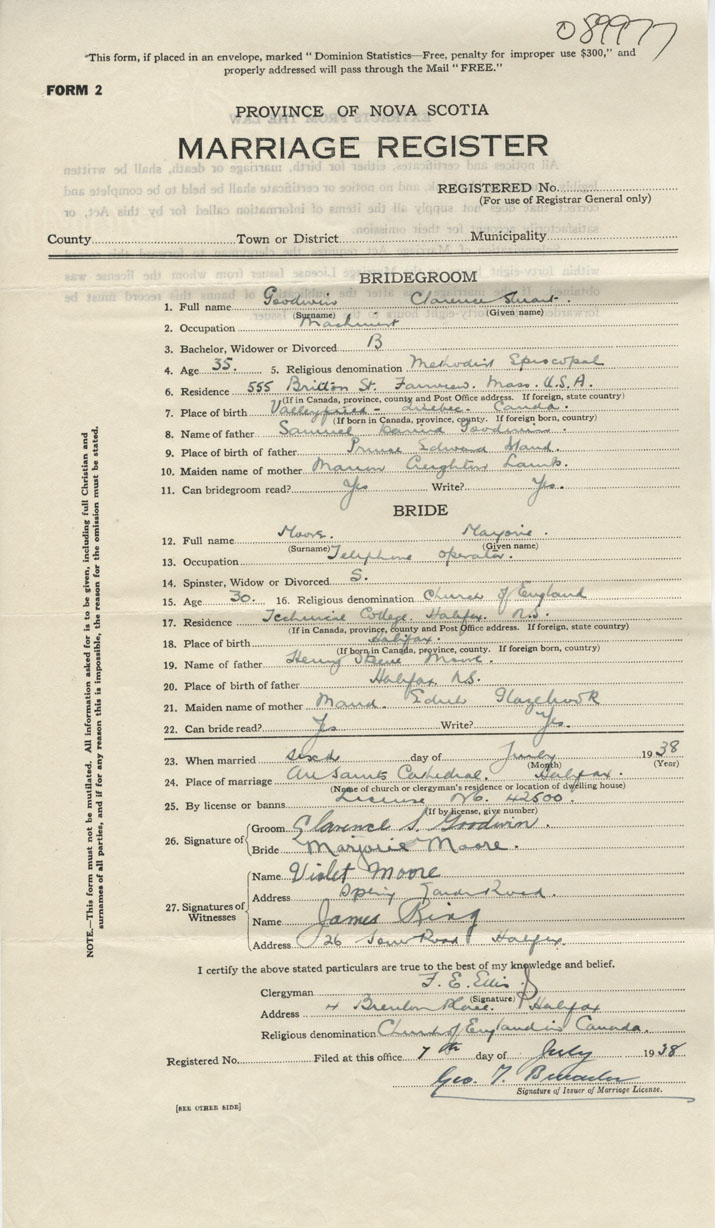 089977
"This form, if placed in an envelope, marked "Dominion Statistics—Free, penalty for improper use $300," and
properly addressed will pass through the Mail "FREE."
FORM 2
PROVINCE OF NOVA SCOTIA
MARRIAGE REGISTER
REGISTERED No.
(For use of Registrar General only)
County Town or District Municipality
BRIDEGROOM
1. Full name Goodwin Clarence Stuart.
(Surname) (Given name)
2. Occupation Machinist
3. Bachelor, Widower or Divorced B
4. Age 35. 5. Religious denomination Methodist Episcopal
6. Residence 555 Britton St. Fairview. Mass. U.S.A.
(If in Canada, province, county and Post Office address. If foreign, state country)
7. Place of birth Valleyfield - Quebec. Canada.
(If born in Canada, province, county. If foreign born, country)
8. Name of father Samuel Goodwin.
9. Place of birth of father Prince Edward Island.
10. Maiden name of mother Marion Creighton Lamb.
11. Can bridegroom read? Yes Write? Yes.
BRIDE
12. Full name Moore. Marjorie.
(Surname) (Given name)
13. Occupation Telephone operator.
14. Spinster, Widow or Divorced S.
15. Age 30. 16. Religious denomination Church of England
17. Residence Technical College. Halifax. N.S.
(If in Canada, province, county and Post Office address. If foreign, state country)
18. Place of birth Halifax.
(If born in Canada, province, county. If foreign born, country)
19. Name of father Henry Moore.
20. Place of birth of father Halifax N.S.
21. Maiden name of mother Maud Edith Glazebrook
22. Can bride read? Yes Write? Yes.
23. When married sixth day of July 1938
(Month) (Year)
24. Place of marriage All Saints Cathedral, Halifax.
(Name of church or clergyman's residence or location of dwelling house)
25. By license or banns License No. 42500.
(If by license, give number)
26. Signature of
Groom Clarence S. Goodwin.
Bride Marjorie Moore.
27. Signatures of
Witnesses
Name Violet Moore
Address Spring Garden Road
Name James Ring
Address 26 Road Halifax.
I certify the above stated particulars are true to the best of my knowledge and belief.
Clergyman F. E. Ellis
(Signature)
Address 4 Brenton Place. Halifax
Religious denomination Church of England in Canada.
Registered No. Filed at this office 7th day of July 1938
Geo. T.
Signature of Issuer of Marriage License.
[SEE OTHER SIDE]
NOTE.—This form must not be mutilated. All information asked for is to be given, including full Christian and
surnames of all parties, and if for any reason this is impossible, the reason for the omission must be stated.